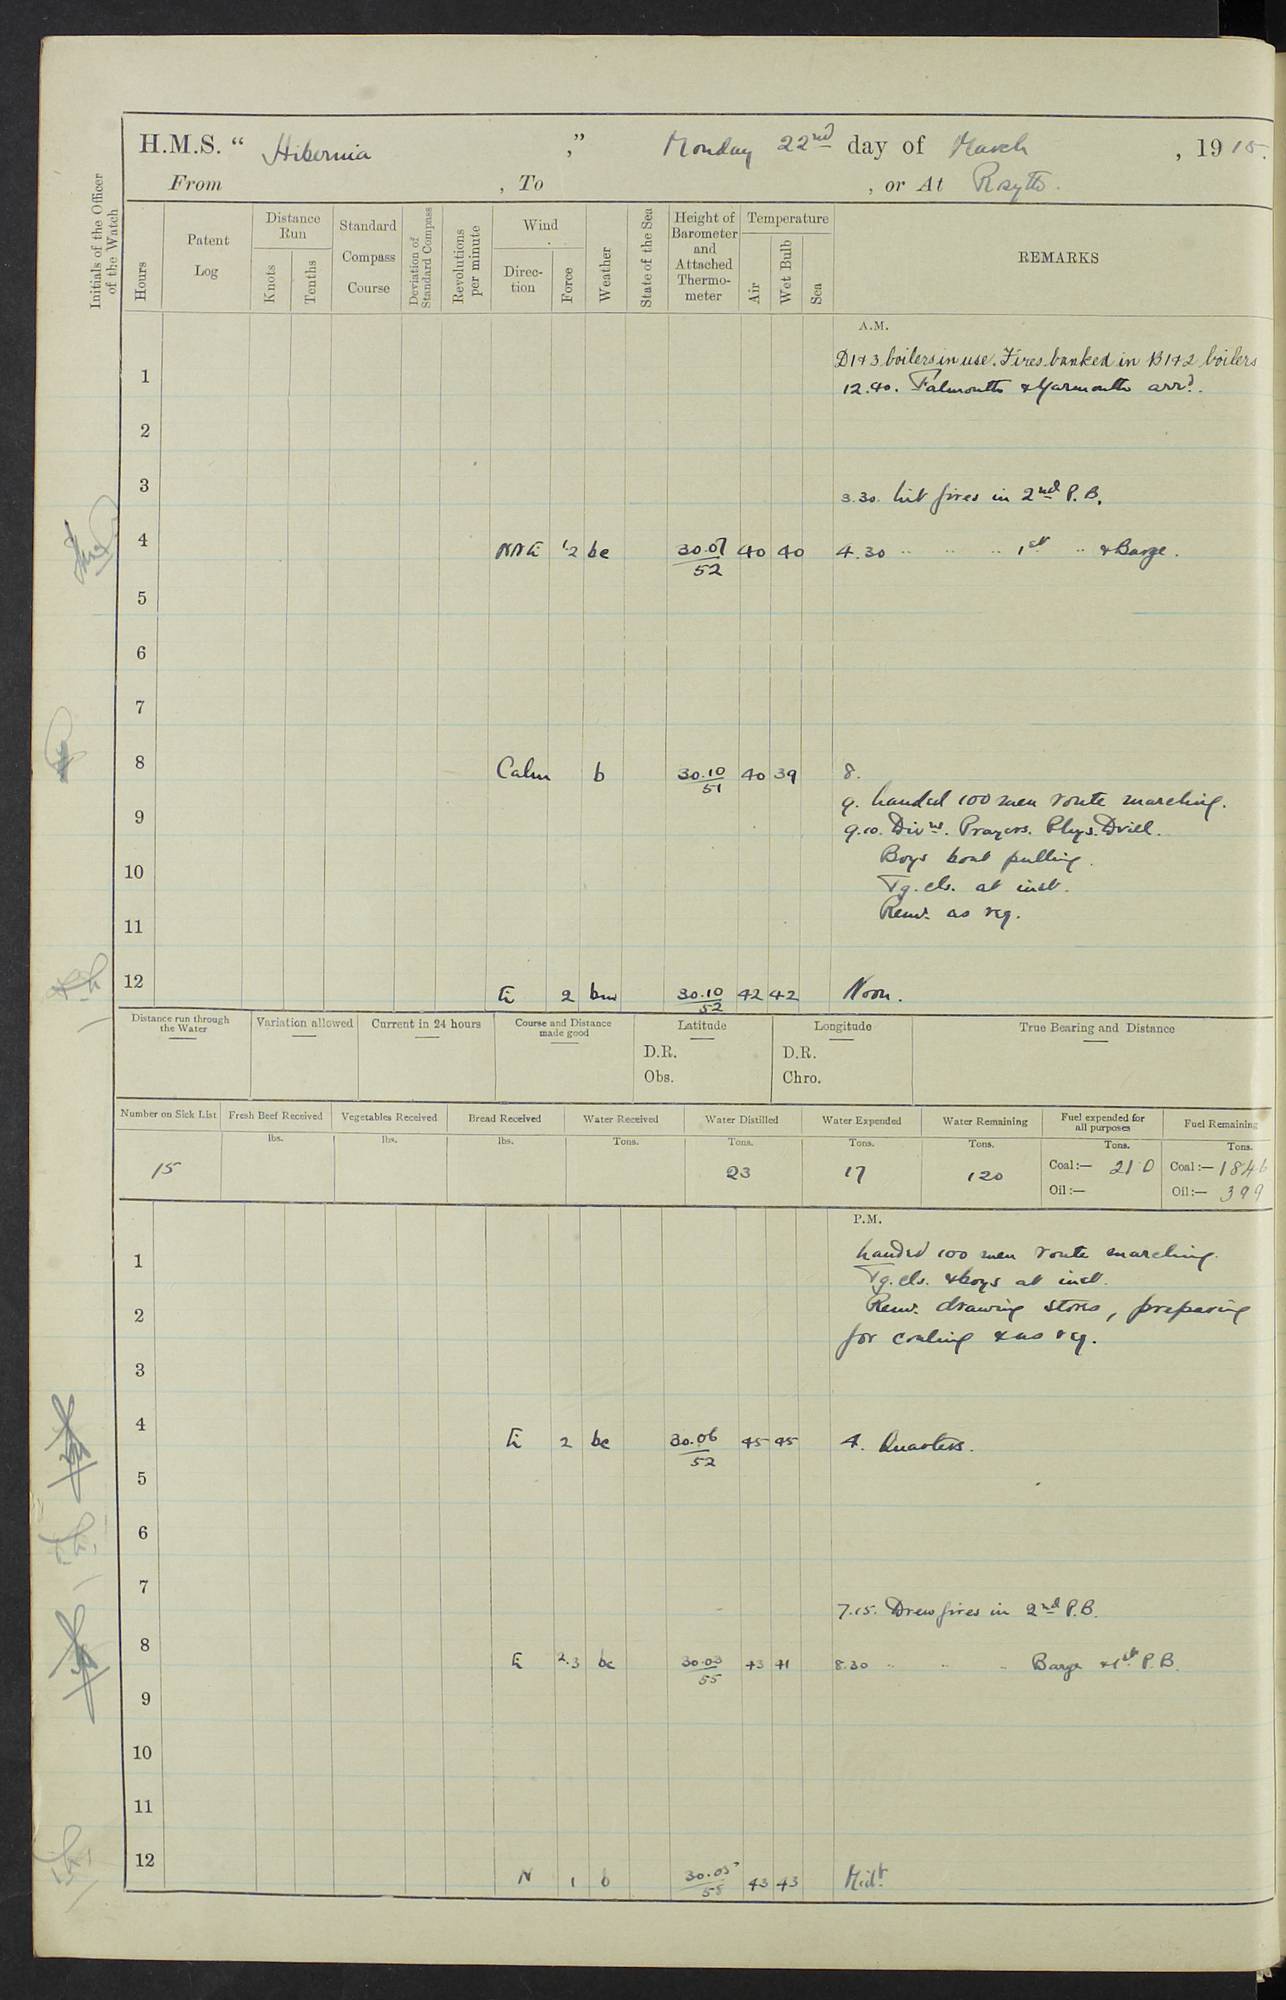 H.M.S. “ Hibernia ,” Monday 22nd day of March , 1915.
From , To , or At Rosyth.
Initials of the Officer of the Watch
Hours
Patent Log
Distance Run
Knots
Tenths
Standard Compass Course
Deviation of Standard Compass
Revolutions per minute
Wind
Direc-tion
Force
Weather
State of the Sea
Height of Barometer and Attached Thermo-meter
Temperature
Air
Wet Bulb
Sea
REMARKS
A.M.
D1+3 boilers in use. Fires banked in B1+2 boilers
1
12.40. Falmouth & Yarmouth arrd.
2
3
3.30. Lit fires in 2nd P.B.
4 NNE 1.2 bc 30.07 40 40 4.30 " " " 1st " & Barge.
52
5
6
7
8 Calm b 30.10 40 39 8.
51
9. Landed 100 men route marching.
9
9.10. Divns. Prayers. Phys. Drill.
Boys boat pulling.
10
Tg. cls. at inst.
Remr. as req.
11
12 E 2 bm 30.10 42 42 Noon.
52
Distance run through the Water
Variation allowed
Current in 24 hours
Course and Distance made good
Latitude
D.R.
Obs.
Longitude
D.R.
Chro.
True Bearing and Distance
Number on Sick List Fresh Beef Received Vegetables Received Bread Received Water Received Water Distilled Water Expended Water Remaining Fuel expended for all purposes Fuel Remaining
lbs. lbs. lbs. Tons. Tons. Tons. Tons. Tons. Tons.
15 23 17 120 Coal:— 21.0 Coal:— 1846
Oil:— Oil:— 399
P.M.
Landed 100 men route marching.
1
Tg. cls. & boys at inst.
Remr. drawing stores, preparing
2
for coaling & as req.
3
4 E 2 bc 30.06 45 45 4. Quarters.
52
5
6
7
7.15. Drew fires in 2nd P.B.
8 E 2.3 bc 30.03 43 41 8.30 " " " Barge & 1st P.B.
55
9
10
11
12 N 1 b 30.05 43 43 Midt.
58